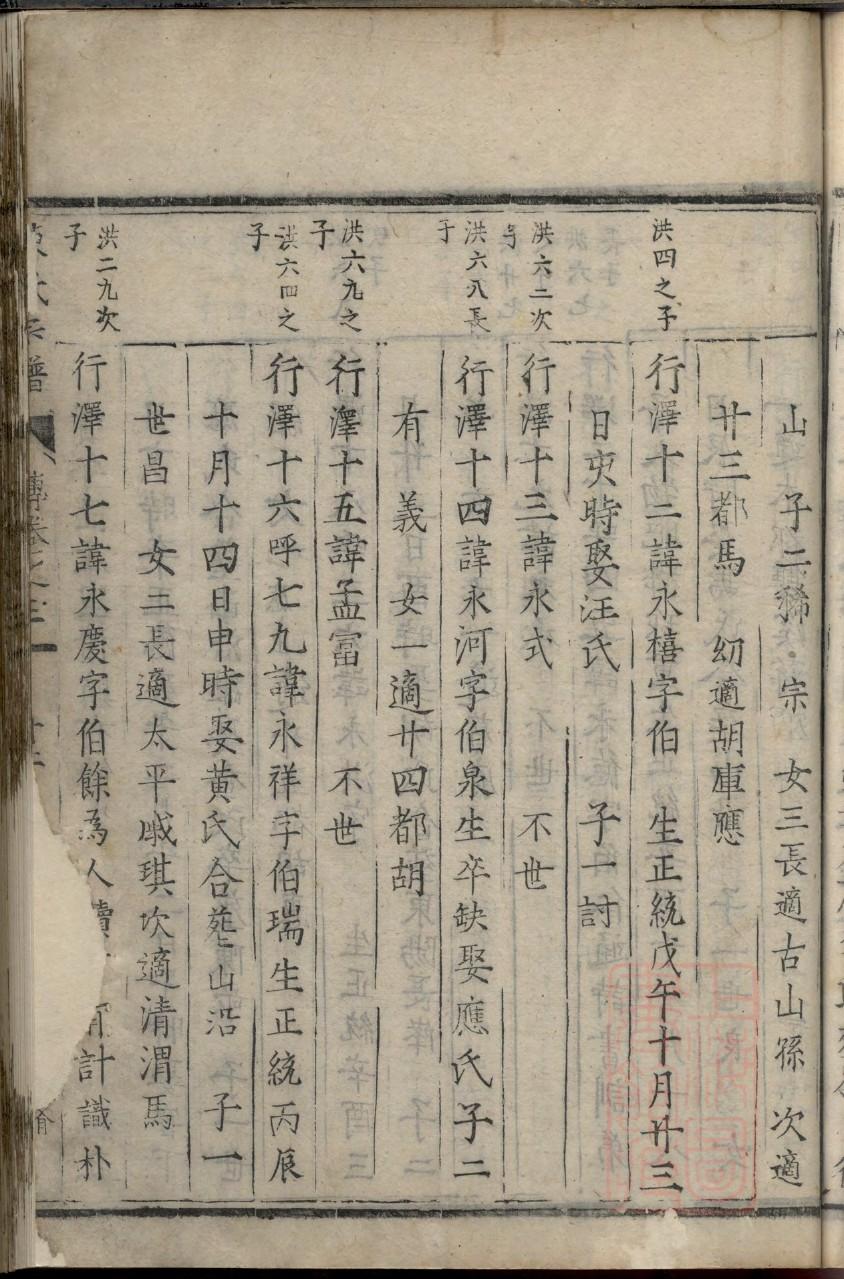 山 子二稀 宗 女三長適古山孫 次適
廿三都馬 幼適胡庫應
洪四之子
行澤十二諱永檣字伯 生正統戊午十月廿三
日㝌時娶汪氏 子一討
洪六二次子
行澤十三諱永式 不世
洪六八長子
行澤十四諱永河字伯泉生卒缺娶應氏子二
有 義 女一適廿四都胡
洪六九之子
行澤十五諱孟富 不世
洪六四之子
行澤十六呼七九諱永祥字伯瑞生正統丙辰
十月十四日申時娶黄氏合塟山沿 子一
世昌 女二長適太平戚琪次適清渭馬
洪二九次子
行澤十七諱永慶字伯餘為人 計識朴
氏宗譜 傳卷之